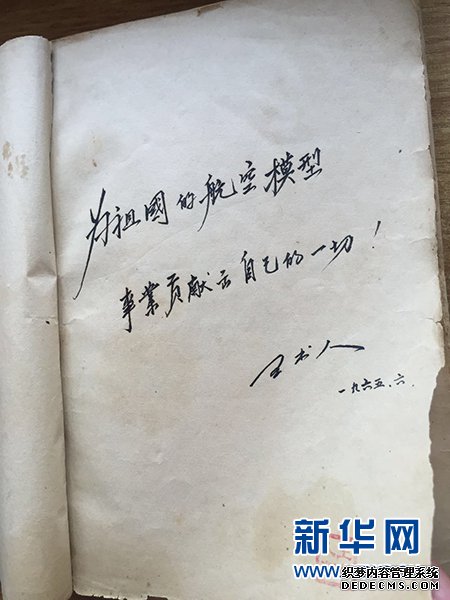 为祖國的航空模型
事業贡献出自己的一切！
王术人
一九六五.六.
新华网
织梦内容管理系统
DEDECMS.COM